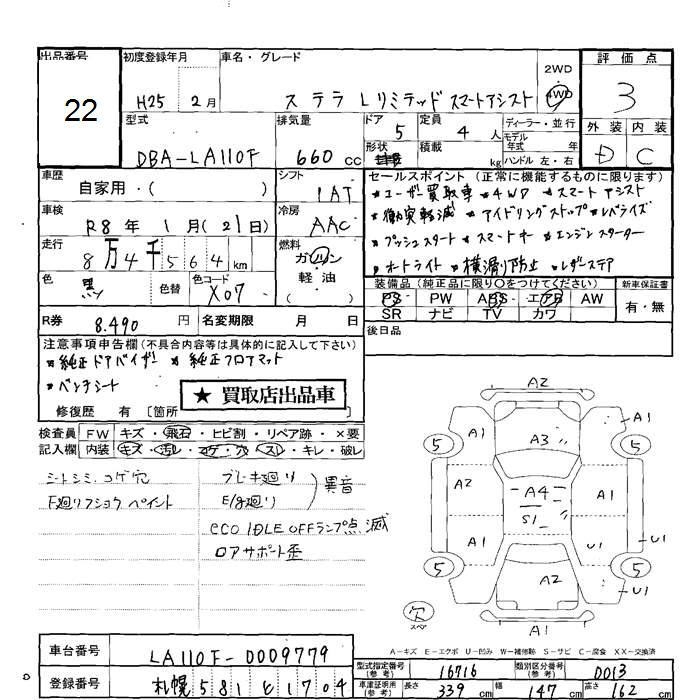 出品番号 初度登録年月 車名・グレード 評価点
22 H25 2月 ステラ Lリミテッド スマートアシスト 2WD 4WD 3
型式 排気量 ドア 定員 ディーラー・並行 外装 内装
DBA-LA110F 660cc 5 4人 モデル年式 年 D C
形状 積載 kg ハンドル 左・右
車歴 シフト セールスポイント(正常に機能するものに限ります)
自家用・( ) 1AT *ユーザー買取車 *4WD *スマートアシスト
車検 冷房 *衝突軽減 *アイドリングストップ *レベライズ
R8年 1月(21日) AAC *プッシュスタート *スマートキー *エンジンスターター
走行 燃料 *オートライト *横滑り防止 *レザーステア
8万4千564km ガソリン 装備品(純正品に限り○をつけてください) 新車保証書
色 色替 色コード 軽油 PS PW ABS エアB AW 有・無
黒 X07 ( ) SR ナビ TV カワ
R券 8.490円 名変期限 月 日 後日品
注意事項申告欄(不具合内容等は具体的に記入して下さい)
*純正ドアバイザー *純正フロアマット
*ベンチシート
★ 買取店出品車
修復歴 有 [箇所
検査員 FW キズ・飛石・ヒビ割・リペア跡・×要
記入欄 内装 キズ・汚レ・コゲ・穴・スレ・キレ・破レ
シートシミ、コゲ穴 ブレーキ廻リ
F廻リフショクペイント E/g廻リ 異音
eco IDLE OFFランプ点滅
ロアサポート歪
A2
A1 A3 A1
5 5
A2 A4 A1
S1
A1 U1 U1
5 5
A2
欠 スペア A1
A-キズ E-エクボ U-凹み W-補修跡 S-サビ C-腐食 XX-交換済
車台番号 LA110F-0009779
型式指定番号(参考) 16716 類別区分番号(参考) 0013
登録番号 札幌 581 と 1704
車庫証明用(参考) 長さ 339cm 幅 147cm 高さ 162cm